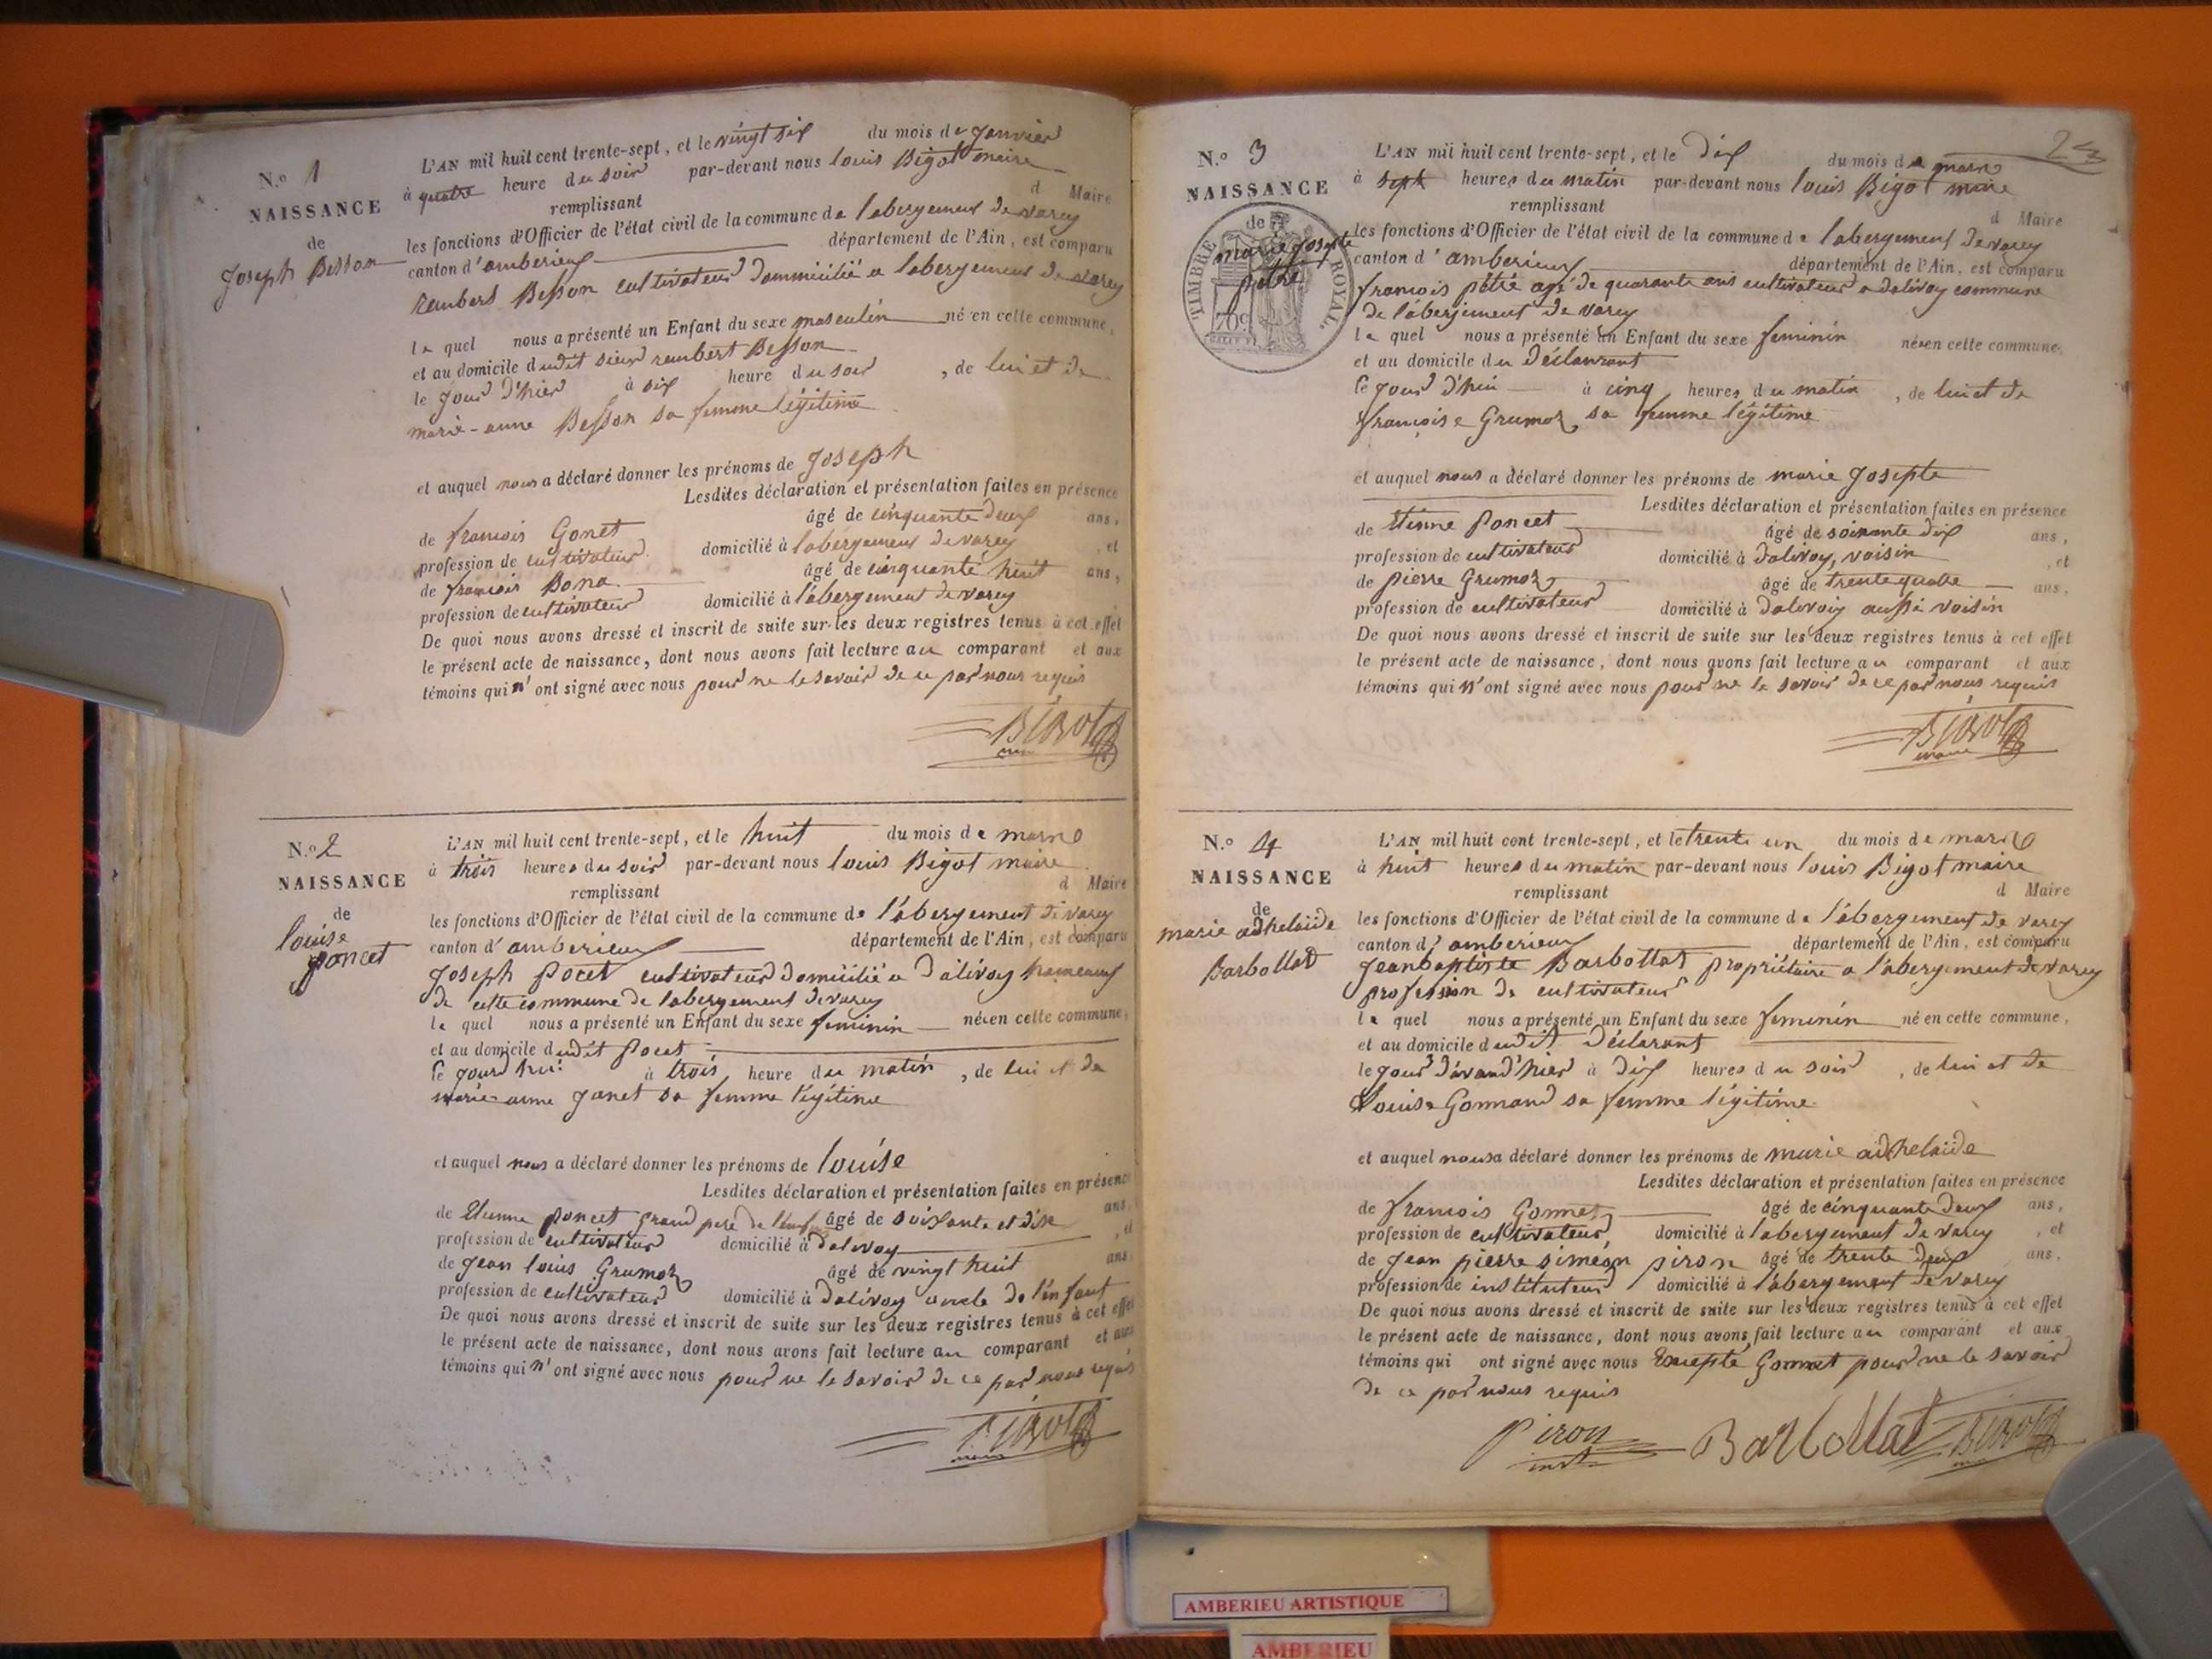 N.o 1
NAISSANCE
de
Joseph Besson
L'AN mil huit cent trente-sept, et le vingt six du mois de janvier
à quatre heure du soir par-devant nous louis Bigot maire
d Maire
remplissant
les fonctions d'Officier de l'état civil de la commune de labergement de varey
canton d'amberieux département de l'Ain, est comparu
rambert Besson cultivateur dommicilié a labergement de varey
le quel nous a présenté un Enfant du sexe masculin né en cette commune,
et au domicile dudit sieur rambert Besson
le jour d'hier à six heure du soir, de lui et de
marie-anne Besson sa femme légitime
et auquel nous a déclaré donner les prénoms de Joseph
Lesdites déclaration et présentation faites en présence
de francois Gonet âgé de cinquante deux ans,
profession de cultivateur domicilié à labergement de varey, et
de francois Bona âgé de cinquante huit ans,
profession de cultivateur domicilié à labergement de varey
De quoi nous avons dressé et inscrit de suite sur les deux registres tenus à cet effet
le présent acte de naissance, dont nous avons fait lecture au comparant et aux
témoins qui n'ont signé avec nous pour ne le savoir de ce par nous requis
Bigot
maire
N.o 2
NAISSANCE
de
louise
poncet
L'AN mil huit cent trente-sept, et le huit du mois de mars
à trois heures du soir par-devant nous louis Bigot maire
d Maire
remplissant
les fonctions d'Officier de l'état civil de la commune de l'abergement de varey
canton d'amberieux département de l'Ain, est comparu
Joseph Pocet cultivateur domicilié a dalivoy hameaux
de cette commune de labergement de varey
le quel nous a présenté un Enfant du sexe feminin née en cette commune,
et au domicile dudit Pocet
le jourd'hui à trois heure du matin, de lui et de
marie-anne Janet sa femme légitime
et auquel nous a déclaré donner les prénoms de louise
Lesdites déclaration et présentation faites en présence
de Etienne poncet grand pere de l'enfan âgé de soixante et dix ans,
profession de cultivateur domicilié à dalivoy, et
de Jean louis Grumoz âgé de vingt huit ans
profession de cultivateur domicilié à dalivoy oncle de l'enfant
De quoi nous avons dressé et inscrit de suite sur les deux registres tenus à cet effet
le présent acte de naissance, dont nous avons fait lecture au comparant et aux
témoins qui n'ont signé avec nous pour ne le savoir de ce par nous requis
Bigot
maire
24
N.o 3
NAISSANCE
de
marie Josepte
pétré
TIMBRE ROYAL
70c
L'AN mil huit cent trente-sept, et le dix du mois de mars
à sept heures du matin par-devant nous louis Bigot maire
d Maire
remplissant
les fonctions d'Officier de l'état civil de la commune de labergement de varey
canton d'amberieux département de l'Ain, est comparu
francois pétré agé de quarante ans cultivateur a dalivoy commune
de l'abergement de varey
le quel nous a présenté un Enfant du sexe feminin née en cette commune,
et au domicile du déclarant
le jour d'hui à cinq heures du matin, de lui et de
francoise Grumoz sa femme légitime
et auquel nous a déclaré donner les prénoms de marie Josepte
Lesdites déclaration et présentation faites en présence
de Etienne Poncet âgé de soixante dix ans,
profession de cultivateur domicilié à dalivoy, voisin, et
de pierre Grumoz âgé de trente quatre ans,
profession de cultivateur domicilié à dalivoy aussi voisin
De quoi nous avons dressé et inscrit de suite sur les deux registres tenus à cet effet
le présent acte de naissance, dont nous avons fait lecture au comparant et aux
témoins qui n'ont signé avec nous pour ne le savoir de ce par nous requis
Bigot
maire
N.o 4
NAISSANCE
de
marie adhelaïde
Barbollat
L'AN mil huit cent trente-sept, et le trente un du mois de mars
à huit heures du matin par-devant nous louis Bigot maire
d Maire
remplissant
les fonctions d'Officier de l'état civil de la commune de l'abergement de varey
canton d'amberieux département de l'Ain, est comparu
Jeanbaptiste Barbollat propriétaire a l'abergement de varey
profession de cultivateur
le quel nous a présenté un Enfant du sexe feminin né en cette commune,
et au domicile dudit déclarant
le jour d'avand'hier à dix heures du soir, de lui et de
Louise Gonnand sa femme légitime
et auquel nous a déclaré donner les prénoms de marie adhelaïde
Lesdites déclaration et présentation faites en présence
de francois Gonnet âgé de cinquante deux ans,
profession de cultivateur domicilié à labergement de varey, et
de Jean pierre siméon piron âgé de trente deux ans,
profession de instituteur domicilié à l'abergement de varey
De quoi nous avons dressé et inscrit de suite sur les deux registres tenus à cet effet
le présent acte de naissance, dont nous avons fait lecture au comparant et aux
témoins qui ont signé avec nous Excepté Gonnet pour ne le savoir
de ce par nous requis
Piron Barbollat Bigot
inst
AMBERIEU ARTISTIQUE
AMBERIEU